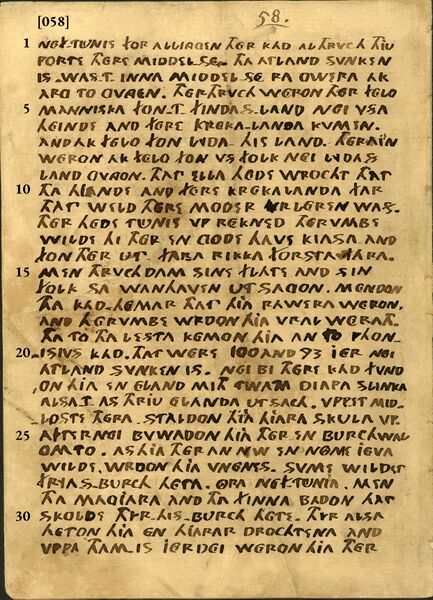 [058] 58.
1 NÉF.TUNIS FOR ALLINGEN THER KÁD AL THRUCH THJU
PORTE THÉRE MIDDEL.SÉ. THA ATLAND SUNKEN
IS. WAS.T INNA MIDDEL.SÉ RA OWERA ÁK
ÁRG TO GVNGEN. THÉRTHRUCH WÉRON THÉR FÉLO
5 MANNISKA FON.T FINDAS.LAND NÉI VSA
HÉINDE AND FÉRE KRÉKA.LANDA KVMEN.
AND ÁK FÉLO FON LYDA.HIS LAND. THÉRÀJN
WÉRON ÁK FÉLO FON VS FOLK NÉI LYDAS
LAND GVNGON. THAT ELLA HÉDE WROCHT THAT
10 THA HÉINDE AND FÉRE KRÉKALANDA FAR
THAT WELD THÉRE MODER VRLÉREN WAS.
THÉR HÉDE TUNIS VP RÉKNED. THÉRVMBE
WILDE HI THÉR EN GODE HAVE KJASA AND
FON THÉR UT. FARA RIKA FORSTA FARA.
15 MEN THRUCHDAM SINE FLÁTE AND SIN
FOLK SA WANHAVEN UTSAGON. MÉNDON
THA KÁD.HÉMAR THAT HJA RÁWERA WÉRON.
AND THÉRVMBE WRDON HJA VRAL WÉRATH.
THA TO THA LESTA KÉMON HJA AN TO PHON-
20 ISIVS KÁD. THAT WÉRE 100 AND 93 JÉR NÉI
ATLAND SUNKEN IS. NÉI BI THÉRE KÁD FVND
ON HJA EN ÉLAND MITH TWAM DIAPA SLINKA
ALSA.T AS THRIU ÉLANDA UTSACH. VPPET MID.
LOSTE THÉRA. STALDON HJA HJARA SKULA VP.
25 AFTERNÉI BVWADON HJA THÉR EN BURCHWAL
OM TO. AS HJA THÉRAN NW EN NÓME JÉVA
WILDE. WRDON HJA VNÉNES. SVME WILDET
FRYAS.BURCH HÉTA. ÓRA NÉF.TUNIA. MEN
THA MAGJARA AND THA FINNA BÁDON THAT
30 SKOLDE THYR.HIS.BURCH HÉTE. THYR ALSA
HÉTON HJA EN HJARAR DROCHTENA AND
VPPA THAM.IS JÉRDÉI WÉRON HJA THÉR